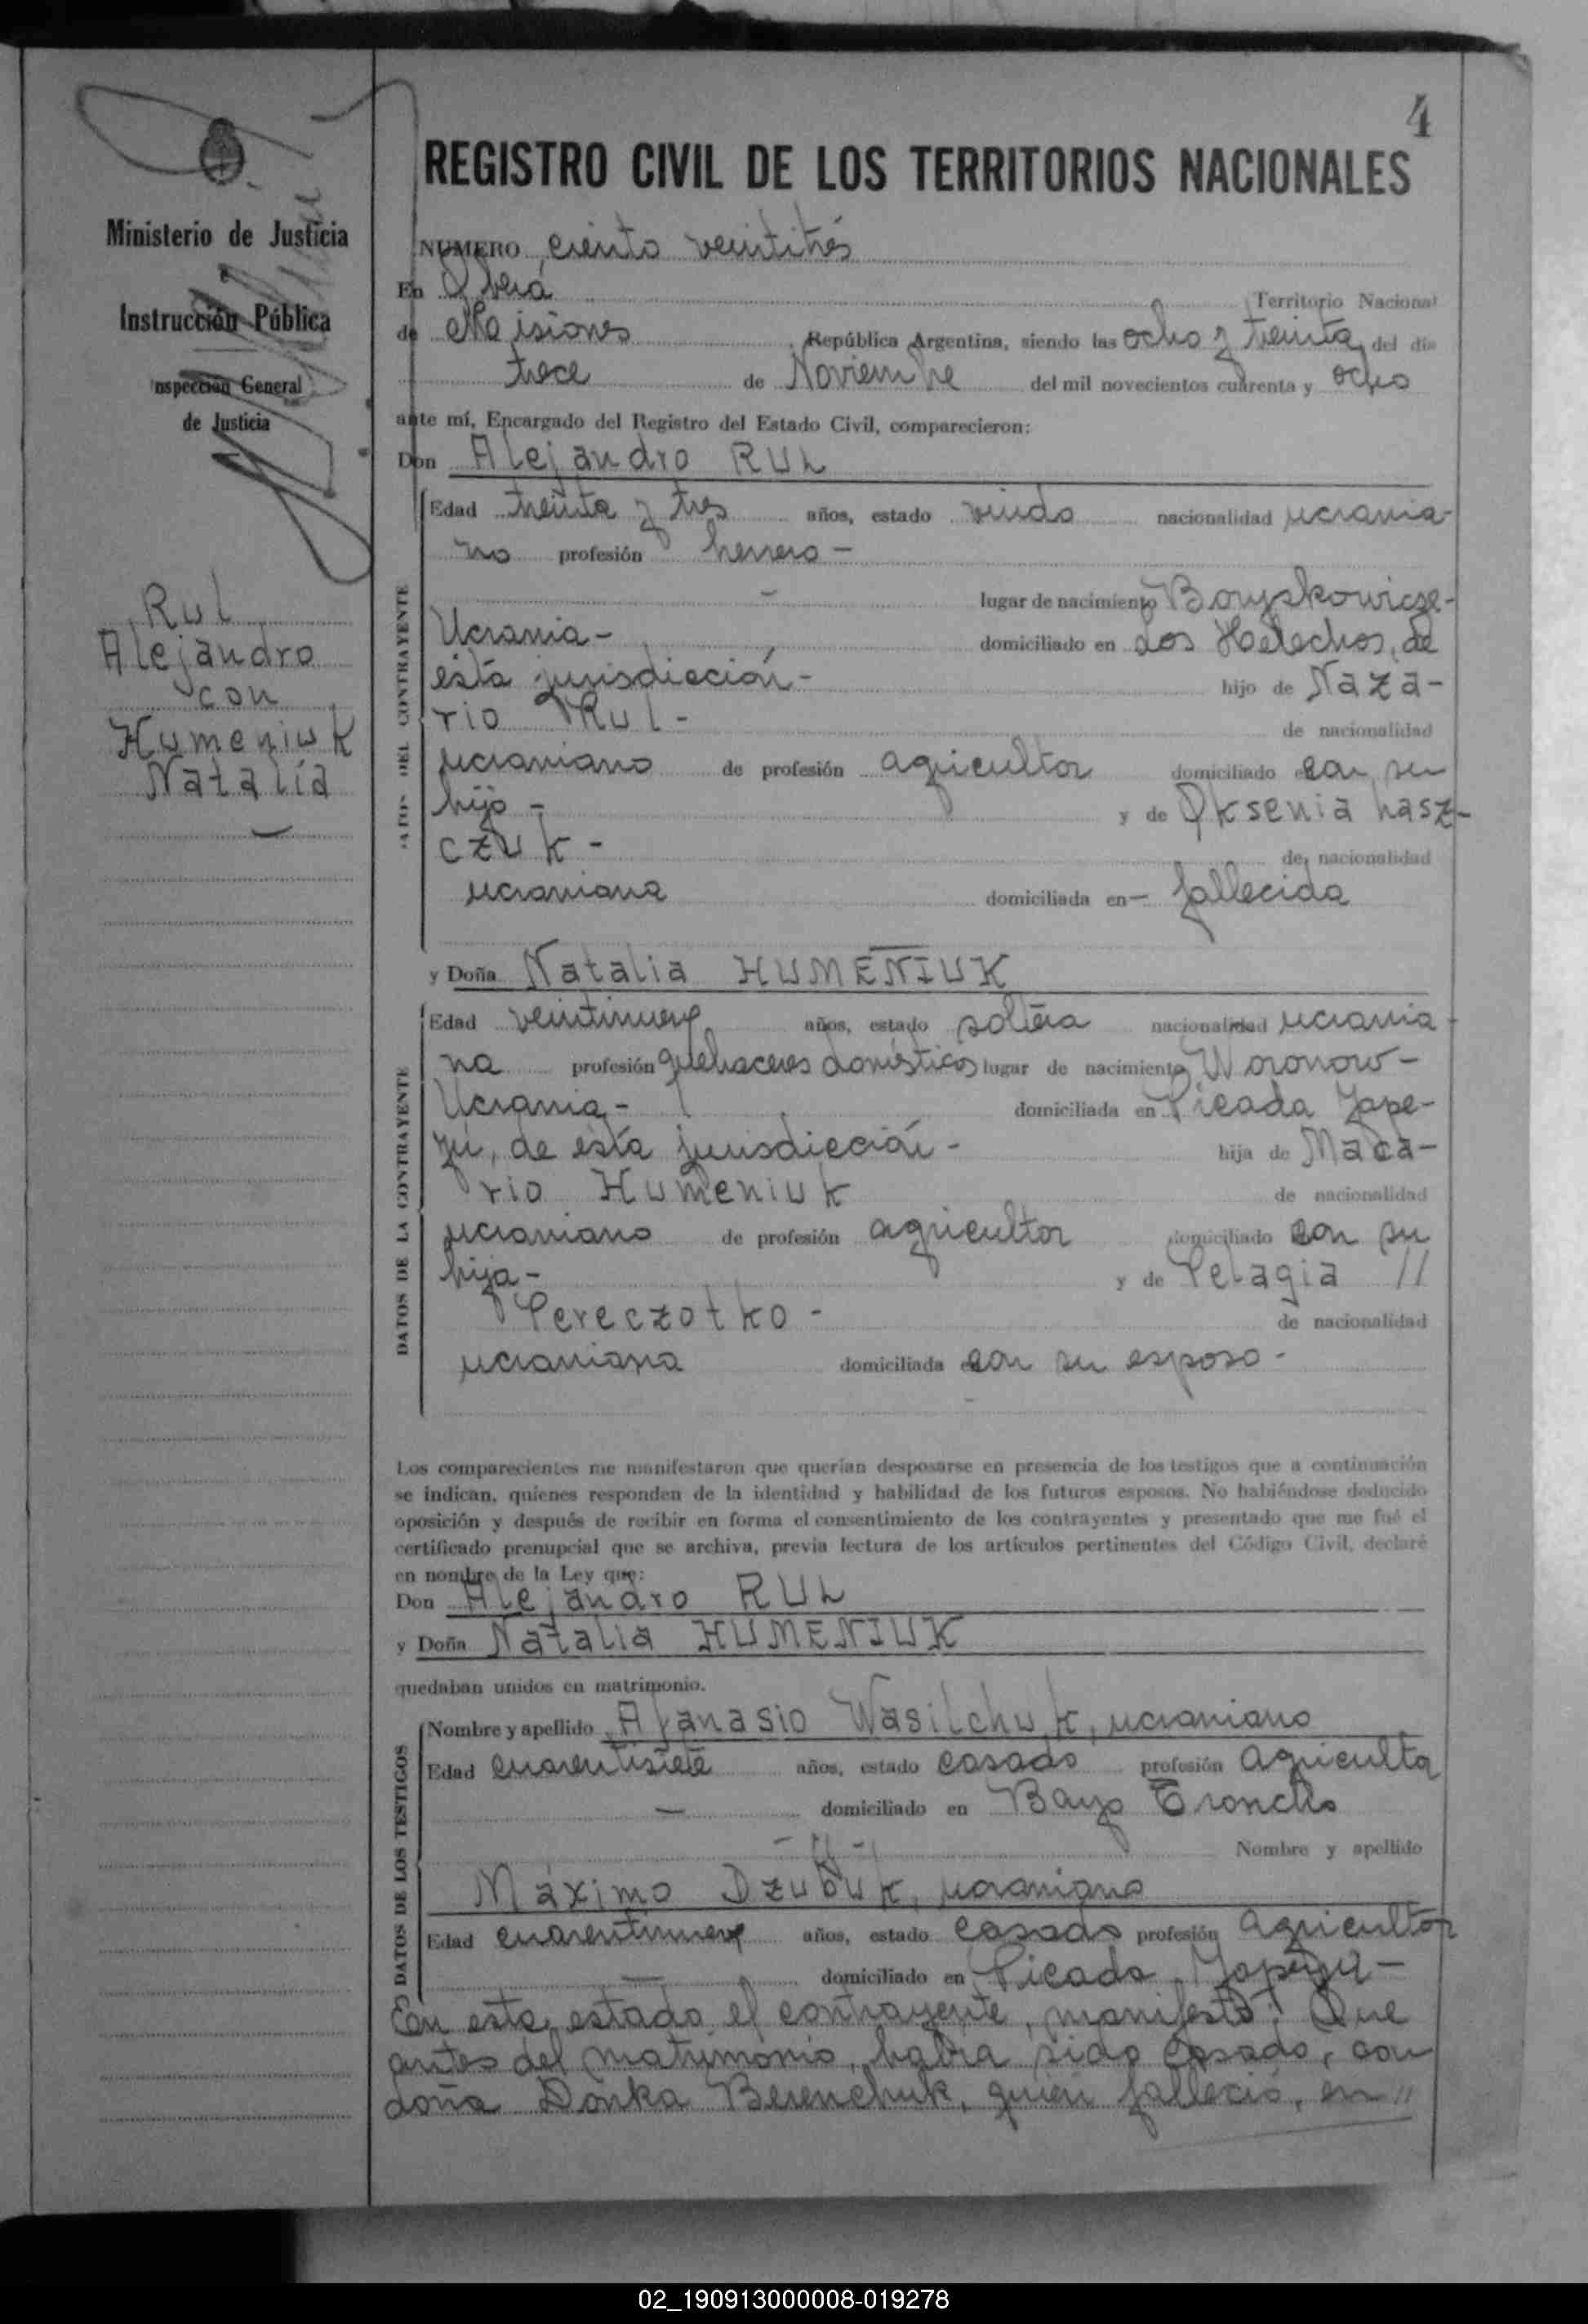 4
REGISTRO CIVIL DE LOS TERRITORIOS NACIONALES
Ministerio de Justicia
e
Instrucción Pública
Inspección General
de Justicia
Rul
Alejandro
con
Humeniuk
Natalia
NUMERO ciento veintitrés
En Oberá Territorio Nacional
de Misiones República Argentina, siendo las ocho y treinta, del día
trece de Noviembre del mil novecientos cuarenta y ocho
ante mí, Encargado del Registro del Estado Civil, comparecieron:
Don Alejandro RUL
DATOS DEL CONTRAYENTE
Edad treinta y tres años, estado viudo nacionalidad ucrania-
no profesión herrero -
- lugar de nacimiento Boryskowicze-
Ucrania - domiciliado en dos Helechos, de
esta jurisdicción - hijo de Naza-
rio Rul - de nacionalidad
ucraniano de profesión agricultor domiciliado con su
hijo - y de Oksenia Lasz-
czuk - de nacionalidad
ucraniana domiciliada en - fallecida
y Doña Natalia HUMENIUK
DATOS DE LA CONTRAYENTE
Edad veintinueve años, estado soltera nacionalidad ucrania-
na profesión quehaceres domésticos lugar de nacimiento Woronow -
Ucrania - domiciliada en Picada Yape-
yú, de esta jurisdicción - hija de Maca-
rio Humeniuk de nacionalidad
ucraniano de profesión agricultor domiciliado con su
hija - y de Pelagia //
Pereczotko - de nacionalidad
ucraniana domiciliada con su esposo -
Los comparecientes me manifestaron que querían desposarse en presencia de los testigos que a continuación
se indican, quienes responden de la identidad y habilidad de los futuros esposos. No habiéndose deducido
oposición y después de recibir en forma el consentimiento de los contrayentes y presentado que me fué el
certificado prenupcial que se archiva, previa lectura de los artículos pertinentes del Código Civil, declaré
en nombre de la Ley que:
Don Alejandro RUL
y Doña Natalia HUMENIUK
quedaban unidos en matrimonio.
DATOS DE LOS TESTIGOS
Nombre y apellido Afanasio Wasilchuk, ucraniano
Edad cuarentisiete años, estado casado profesión agriculto
- domiciliado en Bayo Troncho
- // - Nombre y apellido
Máximo Dzubuk, ucraniano
Edad cuarentinueve años, estado casado profesión agricultor
- domiciliado en Picada Yapeyú -
En este estado el contrayente, manifestó: Que
antes del matrimonio, había sido casado, con
doña Donka Berenchuk, quien falleció, en //
02_190913000008-019278